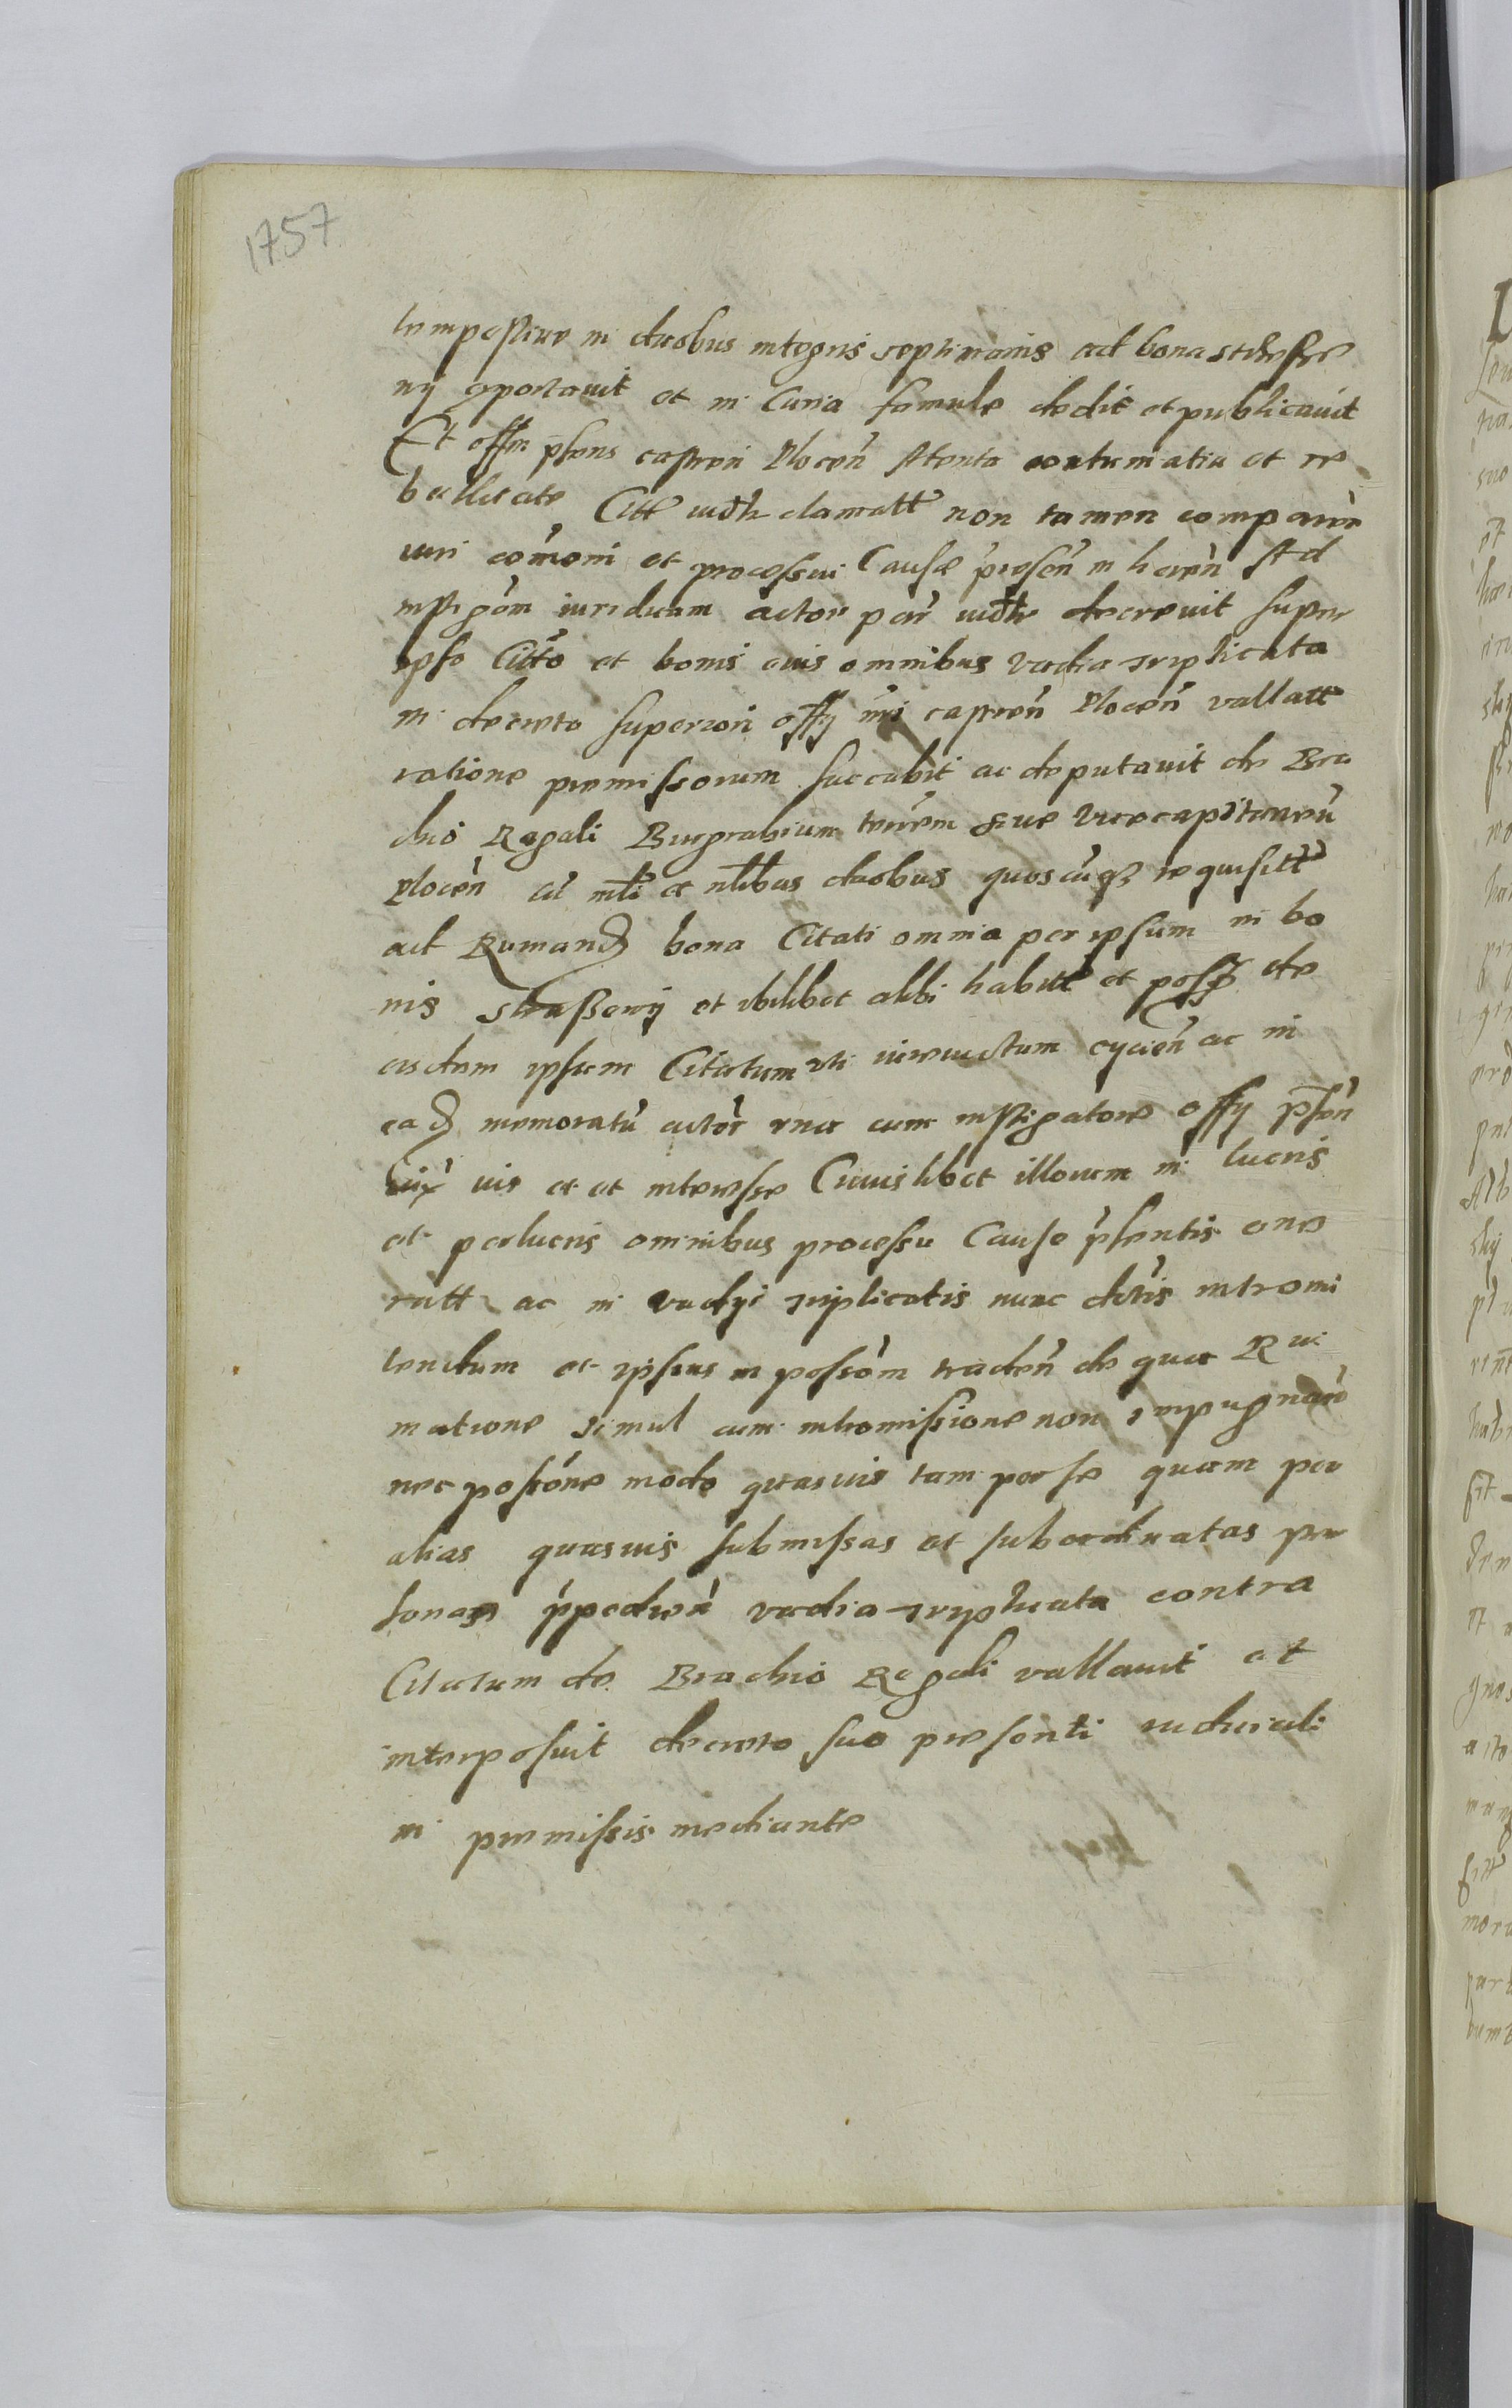 1757
tempestiue in duobus integris septimanis ad bona Strasse
nij oportauit et in Curia famule dedit et publicauit
Et offm pñens castren Plocen̄ Attenta contumatia et re
bellitate Citti iudtr clamatt non tamen comparen̄
iuri com̄oni et processui Causæ presen̄ inheren̄ Ad
instigōm iuridicam actor paŕ iudtr decreuit super
ipso Citto et bonis euis omnibus vadia triplicata
in decreto superiori offij nr̄i castren̄ Plocen̄ vallatt
ratione premissorum succubit ac deputauit de Bra
chio Regali Burgrabium terrem siue Vicecapitaneū
Plocen̄ cū mtl̄i et nl̄ibus duobus quoscūq3 requisitt
ad Rumand bona Citati omnia per ipsum in bo
nis Strassewij et ibilibet alibi habitt et possʒ de
eisdem ipsum Citatum uti iureuictum eycien̄ ac in
ead memoratū actor̄ vna cum instigatore offij pñsen̄
iuř uie et et interesse Cuiuslibet illorum in lucris
et perlucris omnibus processu Cause pñsentis one
ratt ac in vadijs triplicatis nunc dctis intromi
tendum et ipsius in possōm traden̄ de qua Ru
matione simul cum intromissione non impugnan̄
nec possōne modo quasuis tam per se quam per
alias quasuis submissas et subordinatas per
sonas īpedien̄ vadia triplicata contra
Citatum de Brachio Regali vallauit et
interposuit decreto suo presenti iudiciali
in premissis mediante